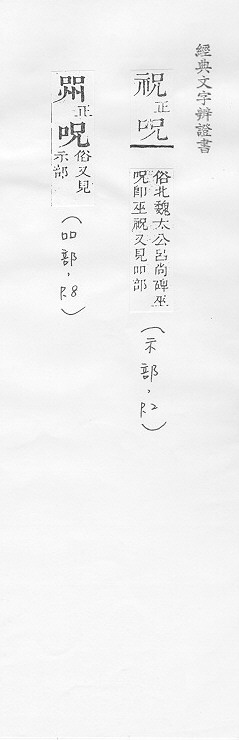 經典文字辨證書
祝正呪俗北魏太公呂尚碑巫
呪卽巫祝又見吅部
(示部,P.2)
喌正呪俗又見
示部
(吅部,P.8)